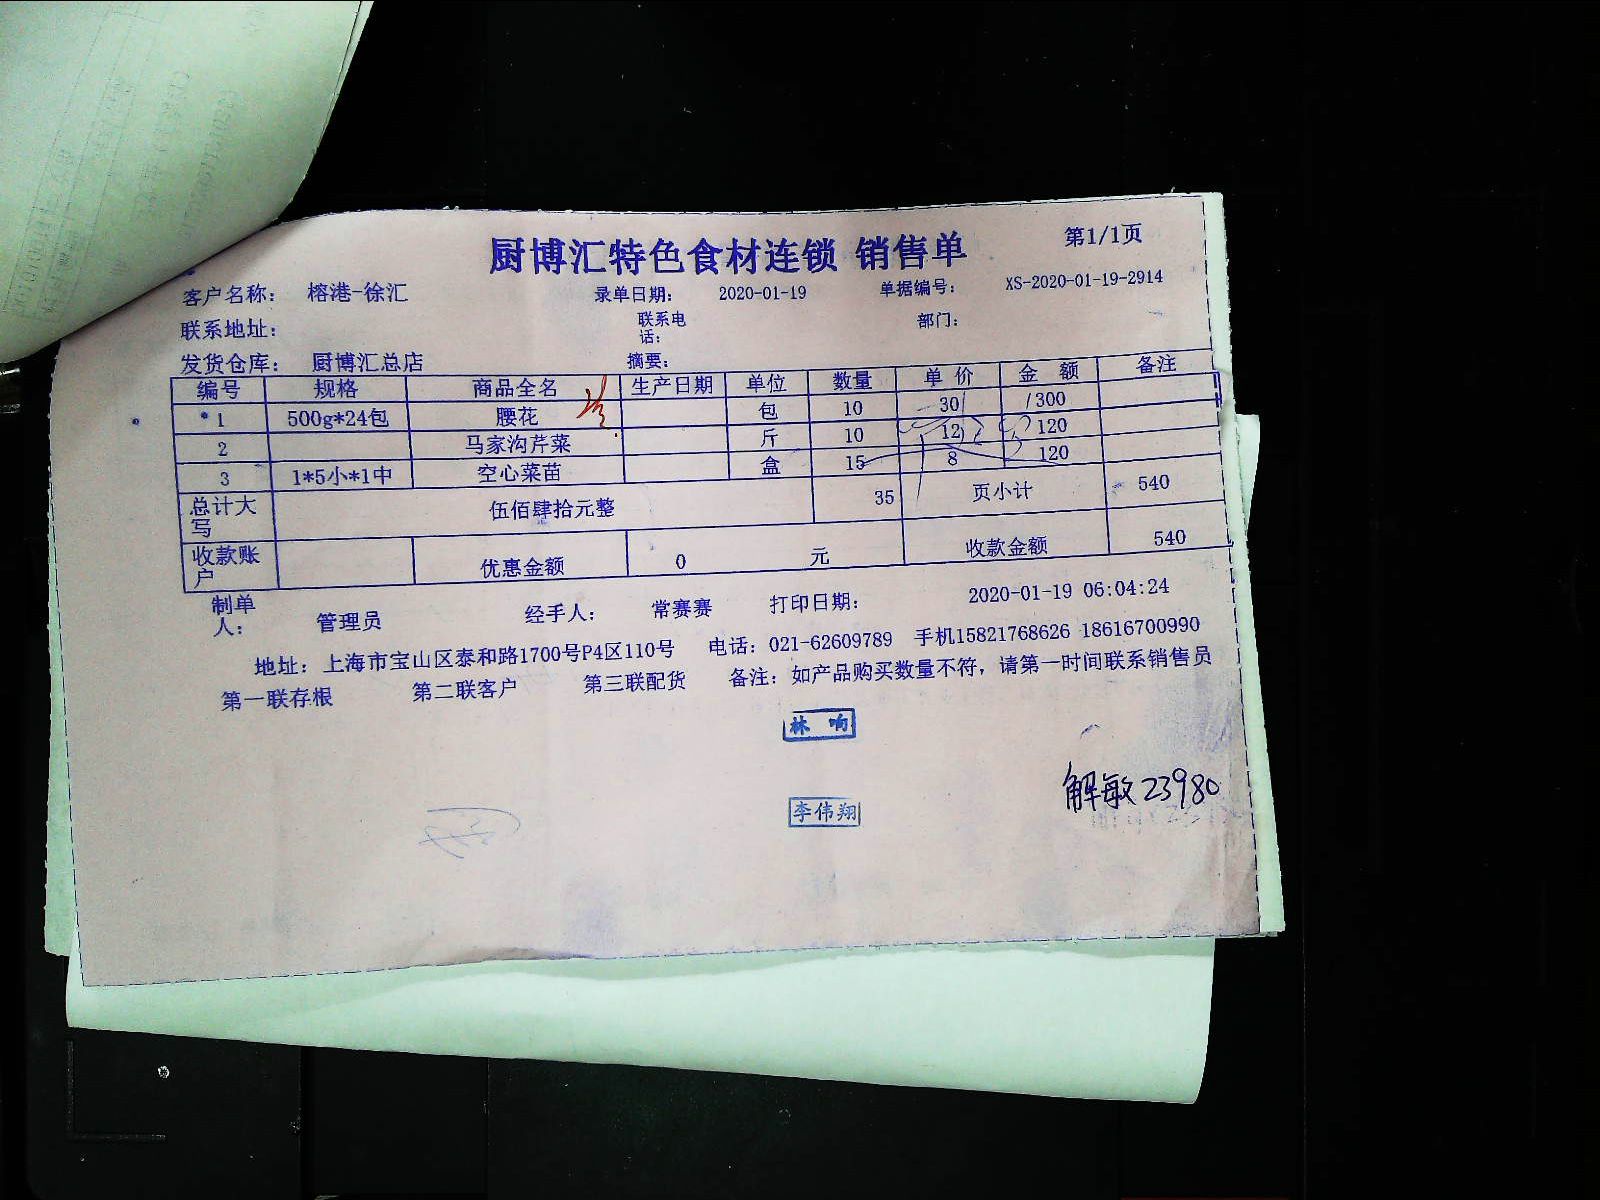 厨博汇特色食材连锁 销售单 第1/1页
客户名称: 榕港-徐汇 录单日期: 2020-01-19 单据编号: XS-2020-01-19-2914
联系地址: 联系电话: 部门:
发货仓库: 厨博汇总店 摘要:
编号 规格 商品全名 生产日期 单位 数量 单价 金额 备注
1 500g*24包 腰花 包 10 30 300
2 马家沟芹菜 斤 10 12 120
3 1*5小*1中 空心菜苗 盒 15 8 120
总计大写 伍佰肆拾元整 35 页小计 540
收款账户 优惠金额 0 元 收款金额 540
制单人: 管理员 经手人: 常赛赛 打印日期: 2020-01-19 06:04:24
地址: 上海市宝山区泰和路1700号P4区110号 电话: 021-62609789 手机15821768626 18616700990
第一联存根 第二联客户 第三联配货 备注: 如产品购买数量不符, 请第一时间联系销售员
林 响
解敏 23980
李伟翔